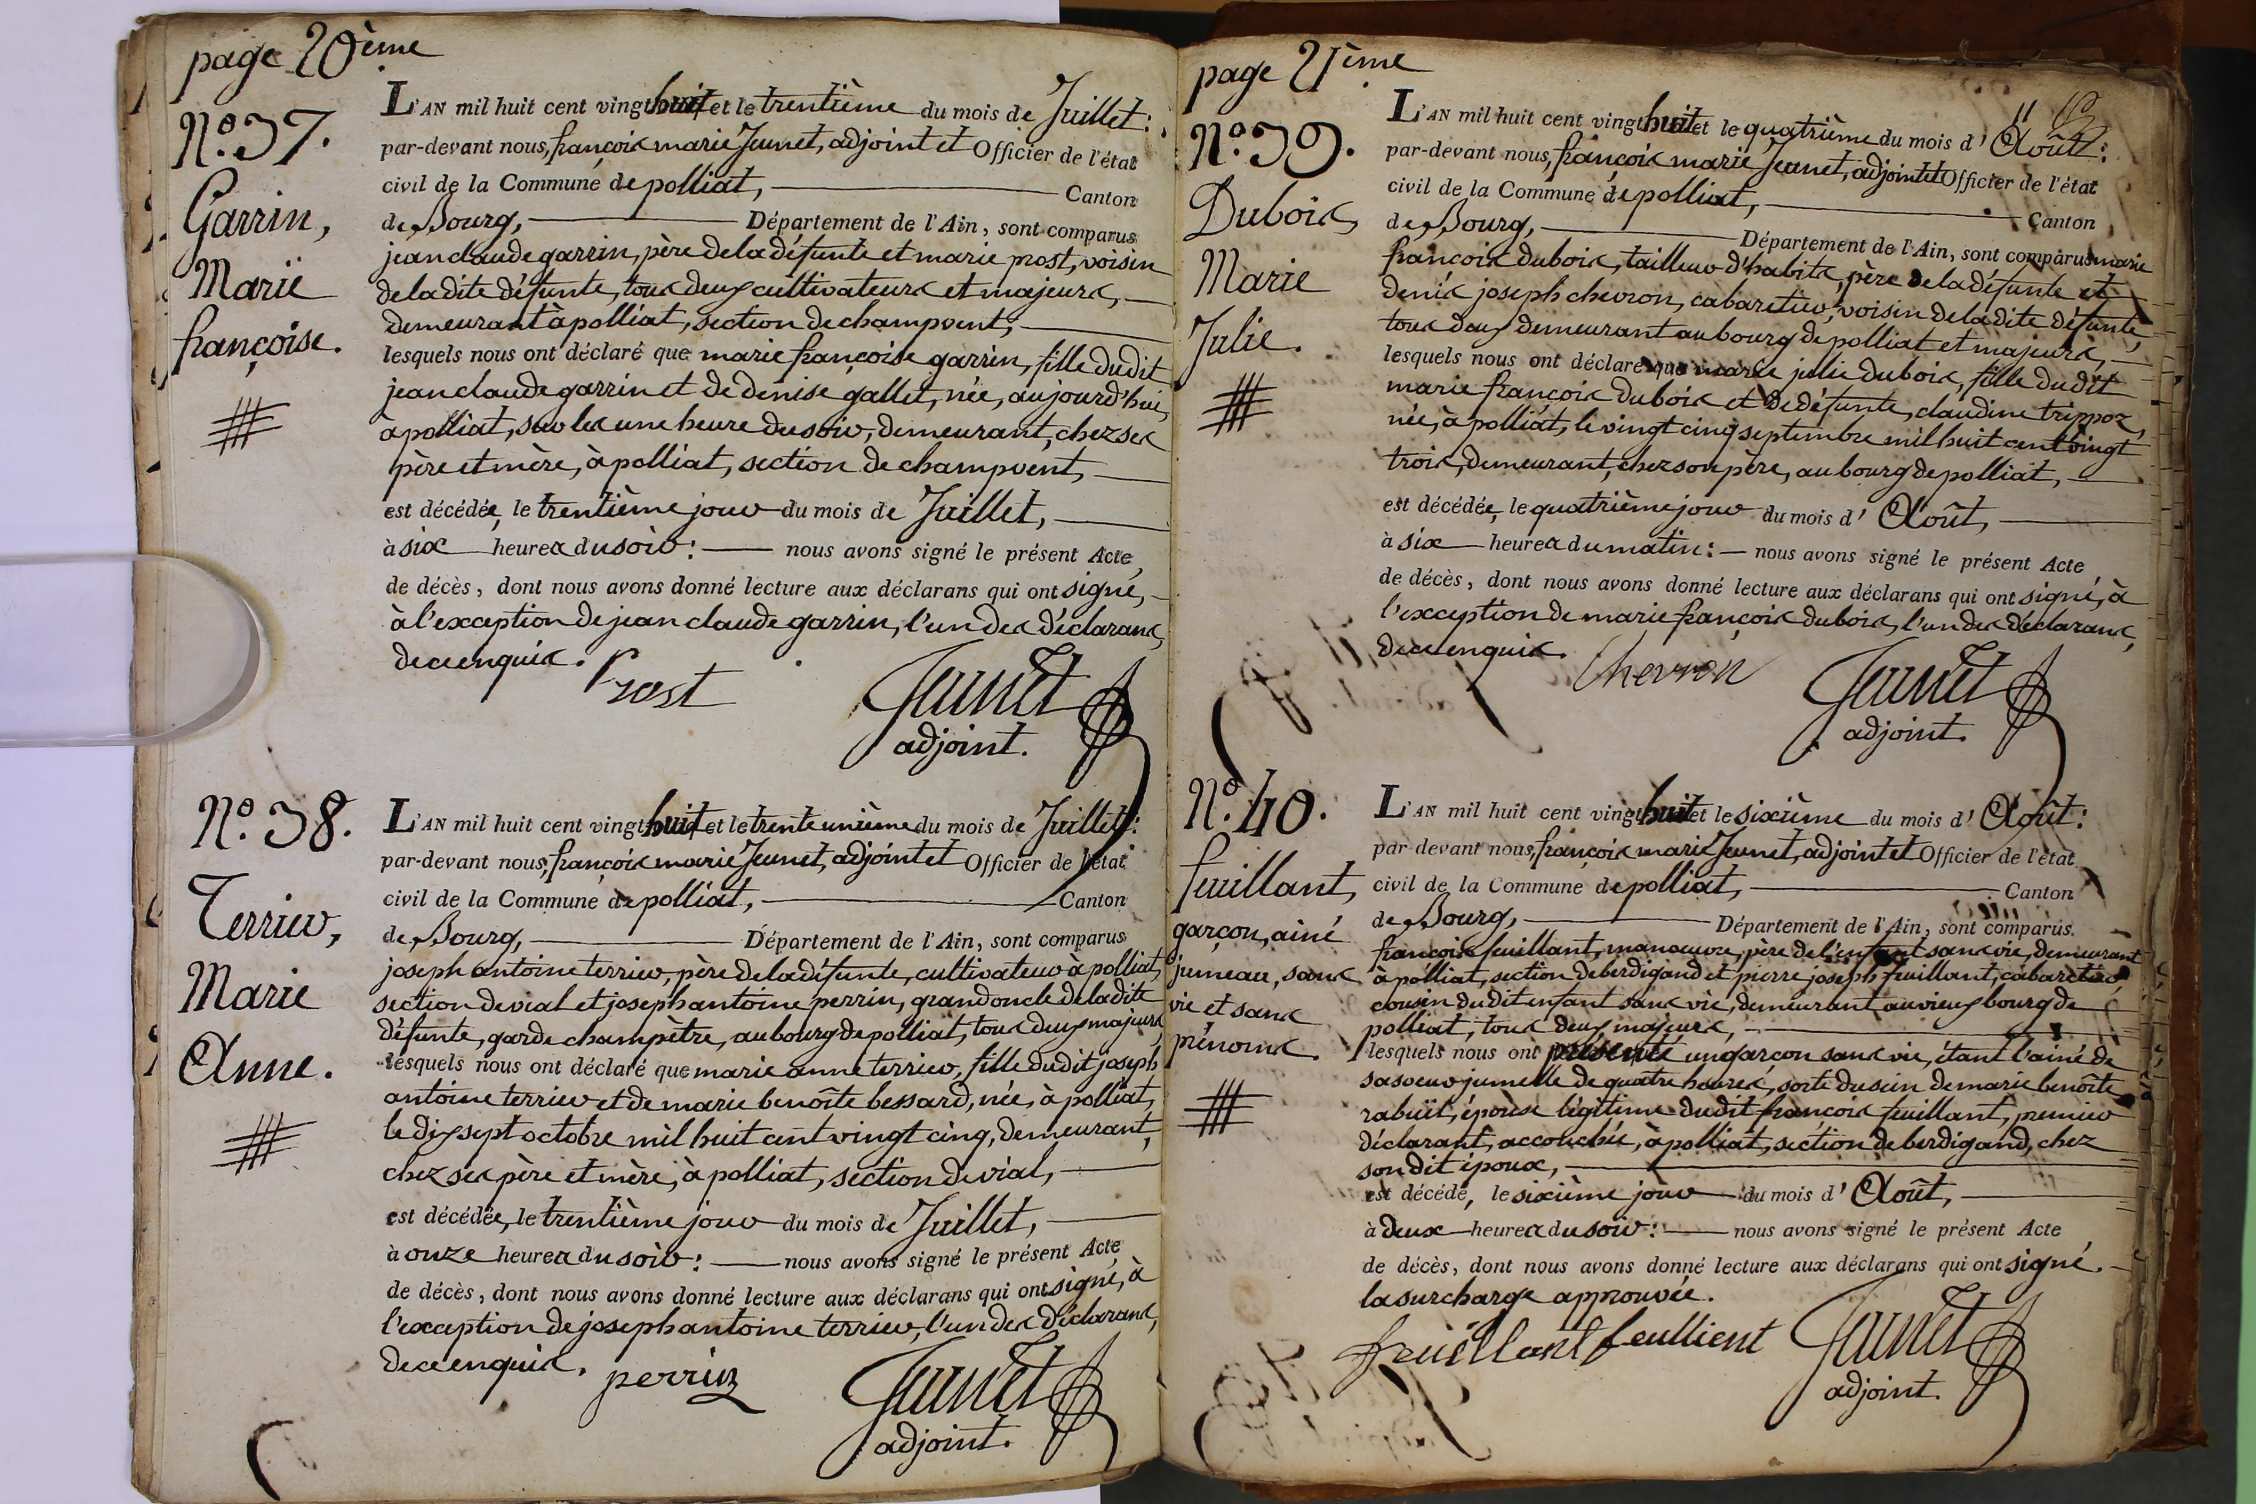 page 20ème
N.° 37.
Garrin,
Marie
françoise.
L'AN mil huit cent vingt huit et le trentième du mois de Juillet:
par-devant nous, françois marie Jeunet, adjoint et Officier de l'état
civil de la Commune de polliat, Canton
de Bourg, Département de l'Ain, sont comparus
jean claude garrin, père de la défunte et marie prost, voisin
de la dite défunte, tous deux cultivateurs et majeurs,
demeurant à polliat, section de champvent,
lesquels nous ont déclaré que marie françoise garrin, fille du dit
jean claude garrin et de denise gallet, née, aujourd'hui,
à polliat, sur les une heure du soir, demeurant, chez ses
père et mère, à polliat, section de champvent,
est décédée, le trentième jour du mois de Juillet,
à six heures du soir: nous avons signé le présent Acte,
de décès, dont nous avons donné lecture aux déclarans qui ont signé,
à l'exception de jean claude garrin, l'un des déclarans,
de ce enquis.
Prost
Jeunet
adjoint.
N.° 38.
Terrier,
Marie
Anne.
L'AN mil huit cent vingt huit et le trente unième du mois de Juillet:
par-devant nous, françois marie Jeunet, adjoint et Officier de l'état
civil de la Commune de polliat, Canton
de Bourg, Département de l'Ain, sont comparus
joseph antoine terrier, père de la défunte, cultivateur à polliat,
section de vial et joseph antoine perrin, grand oncle de la dite
défunte, garde champêtre, au bourg de polliat, tous deux majeurs,
lesquels nous ont déclaré que marie anne terrier, fille du dit joseph
antoine terrier et de marie benoîte bessard, née, à polliat,
le dix sept octobre mil huit cent vingt cinq, demeurant,
chez ses père et mère, à polliat, section de vial,
est décédée, le trentième jour du mois de Juillet,
à onze heures du soir: nous avons signé le présent Acte
de décès, dont nous avons donné lecture aux déclarans qui ont signé, à
l'exception de joseph antoine terrier, l'un des déclarans,
de ce enquis.
perrin
Jeunet
adjoint.
page 21ème
N.° 39.
Dubois,
Marie
Julie.
L'AN mil huit cent vingt huit et le quatrième du mois d' Août:
par-devant nous, françois marie Jeunet, adjoint et Officier de l'état
civil de la Commune de polliat, Canton
de Bourg, Département de l'Ain, sont comparus marie
françois dubois, tailleur d'habits, père de la défunte et
denis joseph chevron, cabaretier, voisin de la dite défunte,
tous deux demeurant au bourg de polliat et majeurs,
lesquels nous ont déclaré que marie julie dubois, fille du dit
marie françois dubois et de défunte, claudine trippoz,
née, à polliat, le vingt cinq septembre mil huit cent vingt
trois, demeurant, chez son père, au bourg de polliat,
est décédée, le quatrième jour du mois d' Août,
à six heures du matin: nous avons signé le présent Acte
de décès, dont nous avons donné lecture aux déclarans qui ont signé, à
l'exception de marie françois dubois, l'un des déclarans,
de ce enquis.
Chevron
Jeunet
adjoint.
N.° 40.
feuillant,
garçon, ainé
jumeau, sans
vie et sans
prénoms.
L'AN mil huit cent vingt huit et le sixième du mois d' Août:
par-devant nous, françois marie Jeunet, adjoint et Officier de l'état
civil de la Commune de polliat, Canton
de Bourg, Département de l'Ain, sont comparus.
françois feuillant, manoeuvre, père de l'enfant sans vie, demeurant
à polliat, section de berdigand et pierre joseph feuillant, cabaretier,
cousin du dit enfant sans vie, demeurant au vieux bourg de
polliat, tous deux majeurs,
lesquels nous ont présenté un garçon sans vie, étant l'ainé de
sa soeur jumelle de quatre heures, sorti du sein de marie benoîte
rabuït, épouse légitime du dit françois feuillant, premier
déclarant, accouchée, à polliat, section de berdigand, chez
son dit époux,
est décédé, le sixième jour du mois d' Août,
à deux heures du soir: nous avons signé le présent Acte
de décès, dont nous avons donné lecture aux déclarans qui ont signé.
la surcharge approuvée.
feuillant feullient
Jeunet
adjoint.